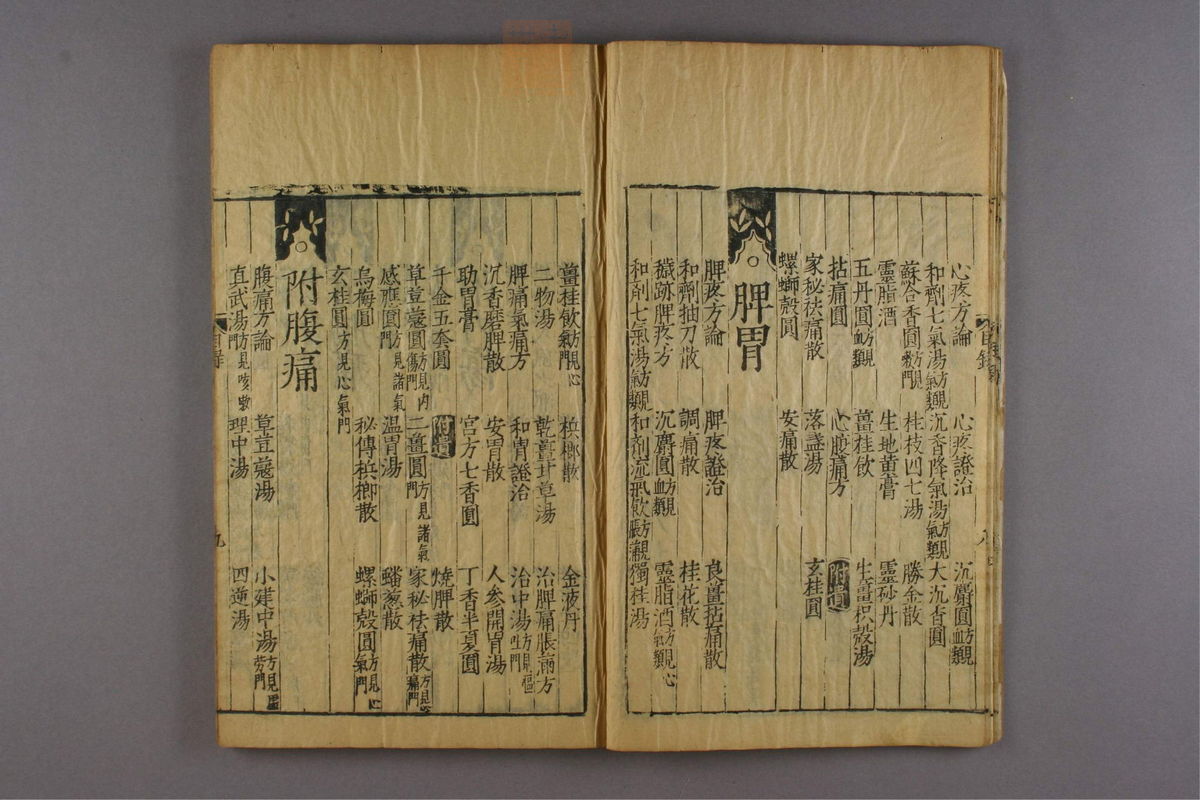 心疼方論　心疼證治　沉麝圓
和劑七氣湯　沉香降氣湯　大沉香圓
蘇合香圓　桂枝四七湯　勝金散
靈脂酒　生地黃膏　靈砂丹
五丹圓　薑桂飲　生薑枳殼湯
拈痛圓　心腹痛方　附遺
家秘祛痛散　落盞湯　玄桂圓
螺螄殼圓　安痛散
脾胃
脾疼方論　脾疼證治　良薑拈痛散
和劑抽刀散　調痛散　桂花散
穢跡脾疼方　沉麝圓　靈脂酒
和劑七氣湯　和劑流氣飲　獨桂湯
目錄　八
薑桂飲方見心氣門　梹榔散　金液丹
二物湯　乾薑甘草湯　治脾痛脹滿方
脾痛氣痛方　和胃證治　治中湯
沉香磨脾散　安胃散　人參開胃湯
助胃膏　宮方七香圓　丁香半夏圓
千金五套圓　附遺　燒脾散
草荳蔻圓方見內傷門　二薑圓方見諸氣門　家秘祛痛散方見心痛門
感應圓方見諸氣門　溫胃湯　蟠葱散
烏梅圓　秘傳梹榔散　螺螄殼圓方見心氣門
玄桂圓方見心氣門
附腹痛
腹痛方論　草荳蔻湯　小建中湯方見虛勞門
直武湯方見咳嗽門　理中湯　四逆湯
目錄　九